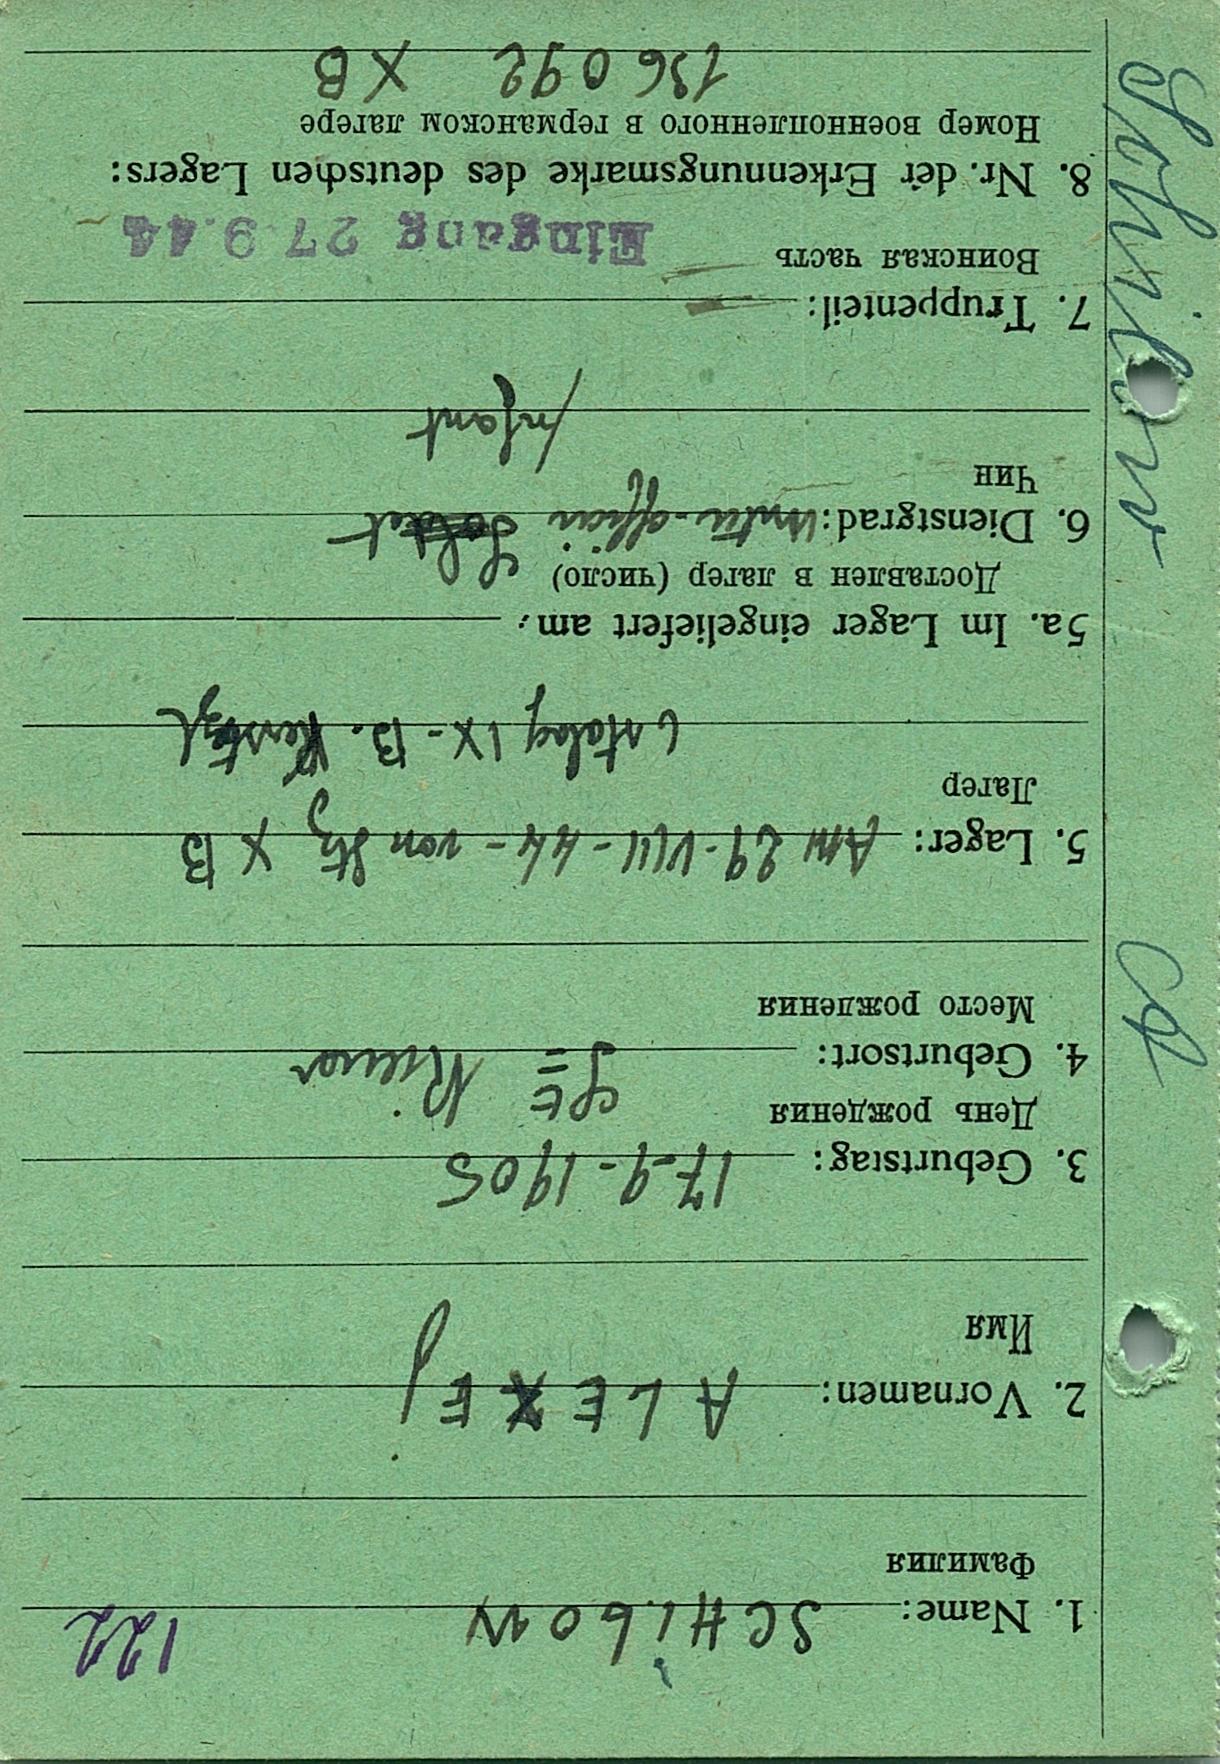 122
1. Name: SCHiBOW
Фамилия
2. Vornamen: ALEXEJ
Имя
3. Geburtstag: 17-9-1905
День рождения
4. Geburtsort:
Место рождения
5. Lager: AM 29-VIII-44- von XB
Лагер
Stalag IX-B.
5a. Im Lager eingeliefert am:
Доставлен в лагер (число)
6. Dienstgrad: Unter-officir Soldat
Чин
Infant
7. Truppenteil:
Воинская часть
Eingang 27 9.44
8. Nr. der Erkennungsmarke des deutschen Lagers:
Номер военнопленного в германском лагере
136092 XB
Schibow